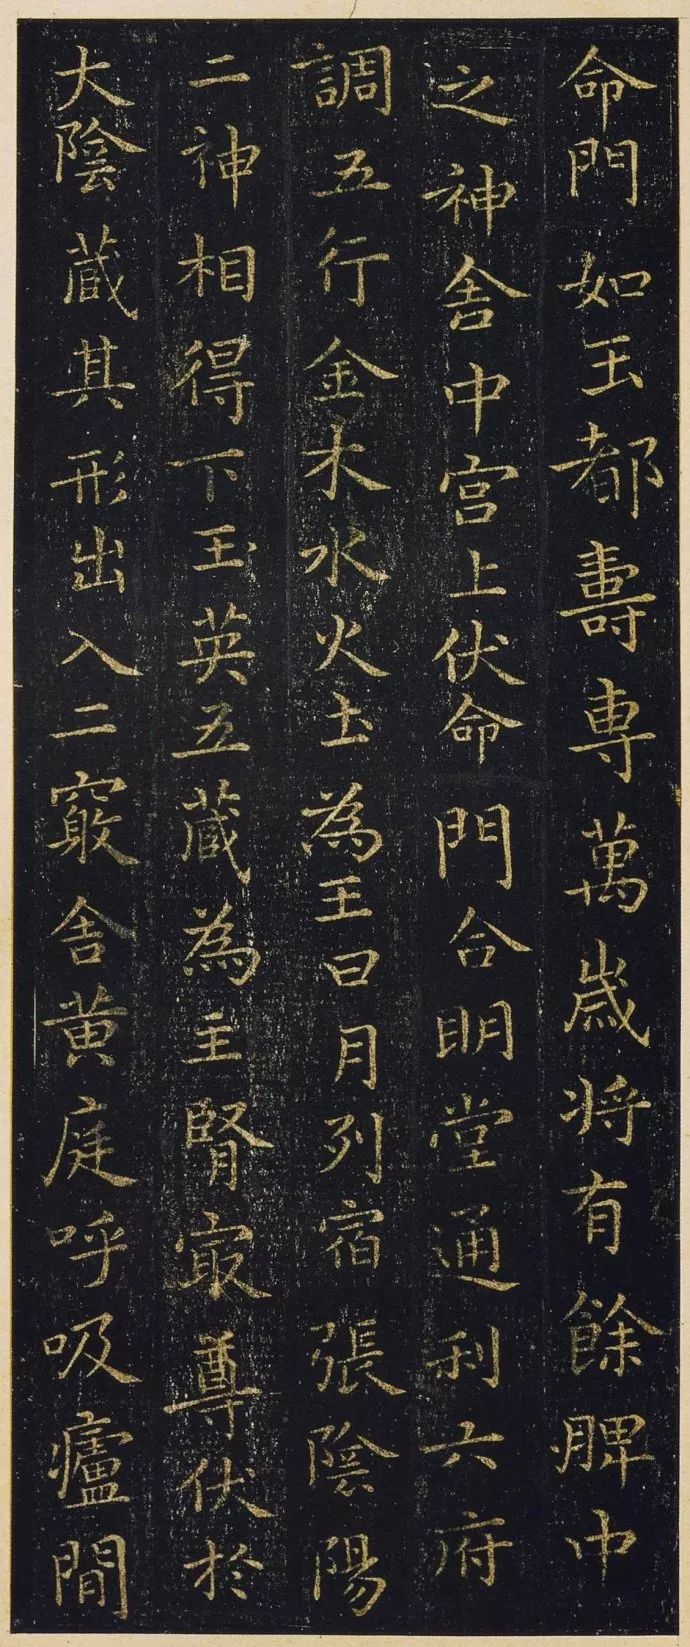 命門如玉都壽専萬歲将有餘脾中
之神舍中宮上伏命門合明堂通利六府
調五行金木水火土為王日月列宿張陰陽
二神相得下玉英五藏為主腎冣尊伏於
大陰藏其形出入二竅舍黄庭呼吸廬間